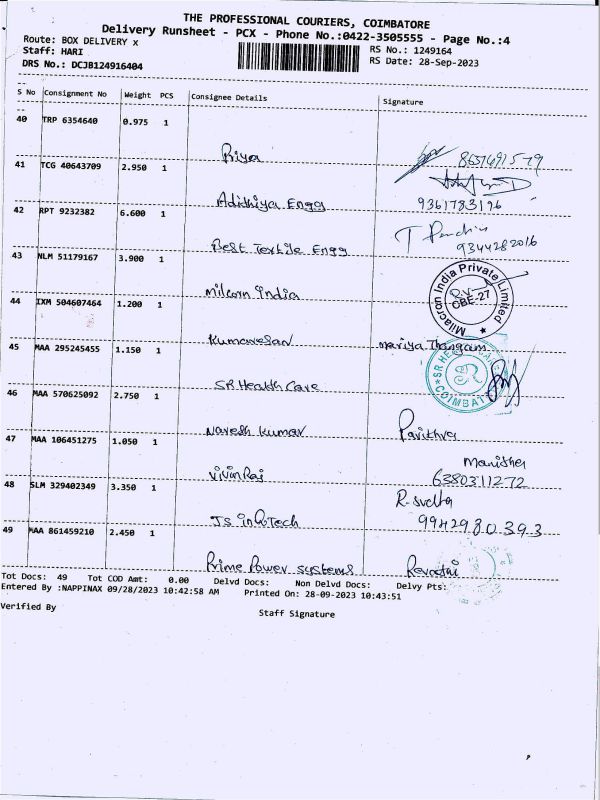 THE PROFESSIONAL COURIERS, COIMBATORE
Delivery Runsheet - PCX - Phone No.:0422-3505555 - Page No.:4
Route: BOX DELIVERY x
RS No.: 1249164
Staff: HARI
RS Date: 28-Sep-2023
DRS No.: DCJB124916404
S No Consignment No Weight PCS Consignee Details Signature
40 TRP 6354640 0.975 1
Riya
41 TCG 40643709 2.950 1
Adithiya Engg 9361783196
42 RPT 9232382 6.600 1
Best Textile Engg 9344282016
43 NLM 51179167 3.900 1
milcorn India
Milacron India Private Limited
CBE-27
44 IXM 504607464 1.200 1
Kumaresan mariya Thangam
45 MAA 295245455 1.150 1
SR Health Care
SR HEALTH CARE
COIMBATORE
46 MAA 570625092 2.750 1
Naresh Kumar Pavithra
47 MAA 106451275 1.050 1
Manisha
VivinRaj 6380311272
48 SLM 329402349 3.350 1
JS infoTech 9942980393
49 MAA 861459210 2.450 1
Prime Power systems Revathi
Tot Docs: 49 Tot COD Amt: 0.00 Delvd Docs: Non Delvd Docs: Delvy Pts:
Entered By :NAPPINAX 09/28/2023 10:42:58 AM Printed On: 28-09-2023 10:43:51
Verified By
Staff Signature